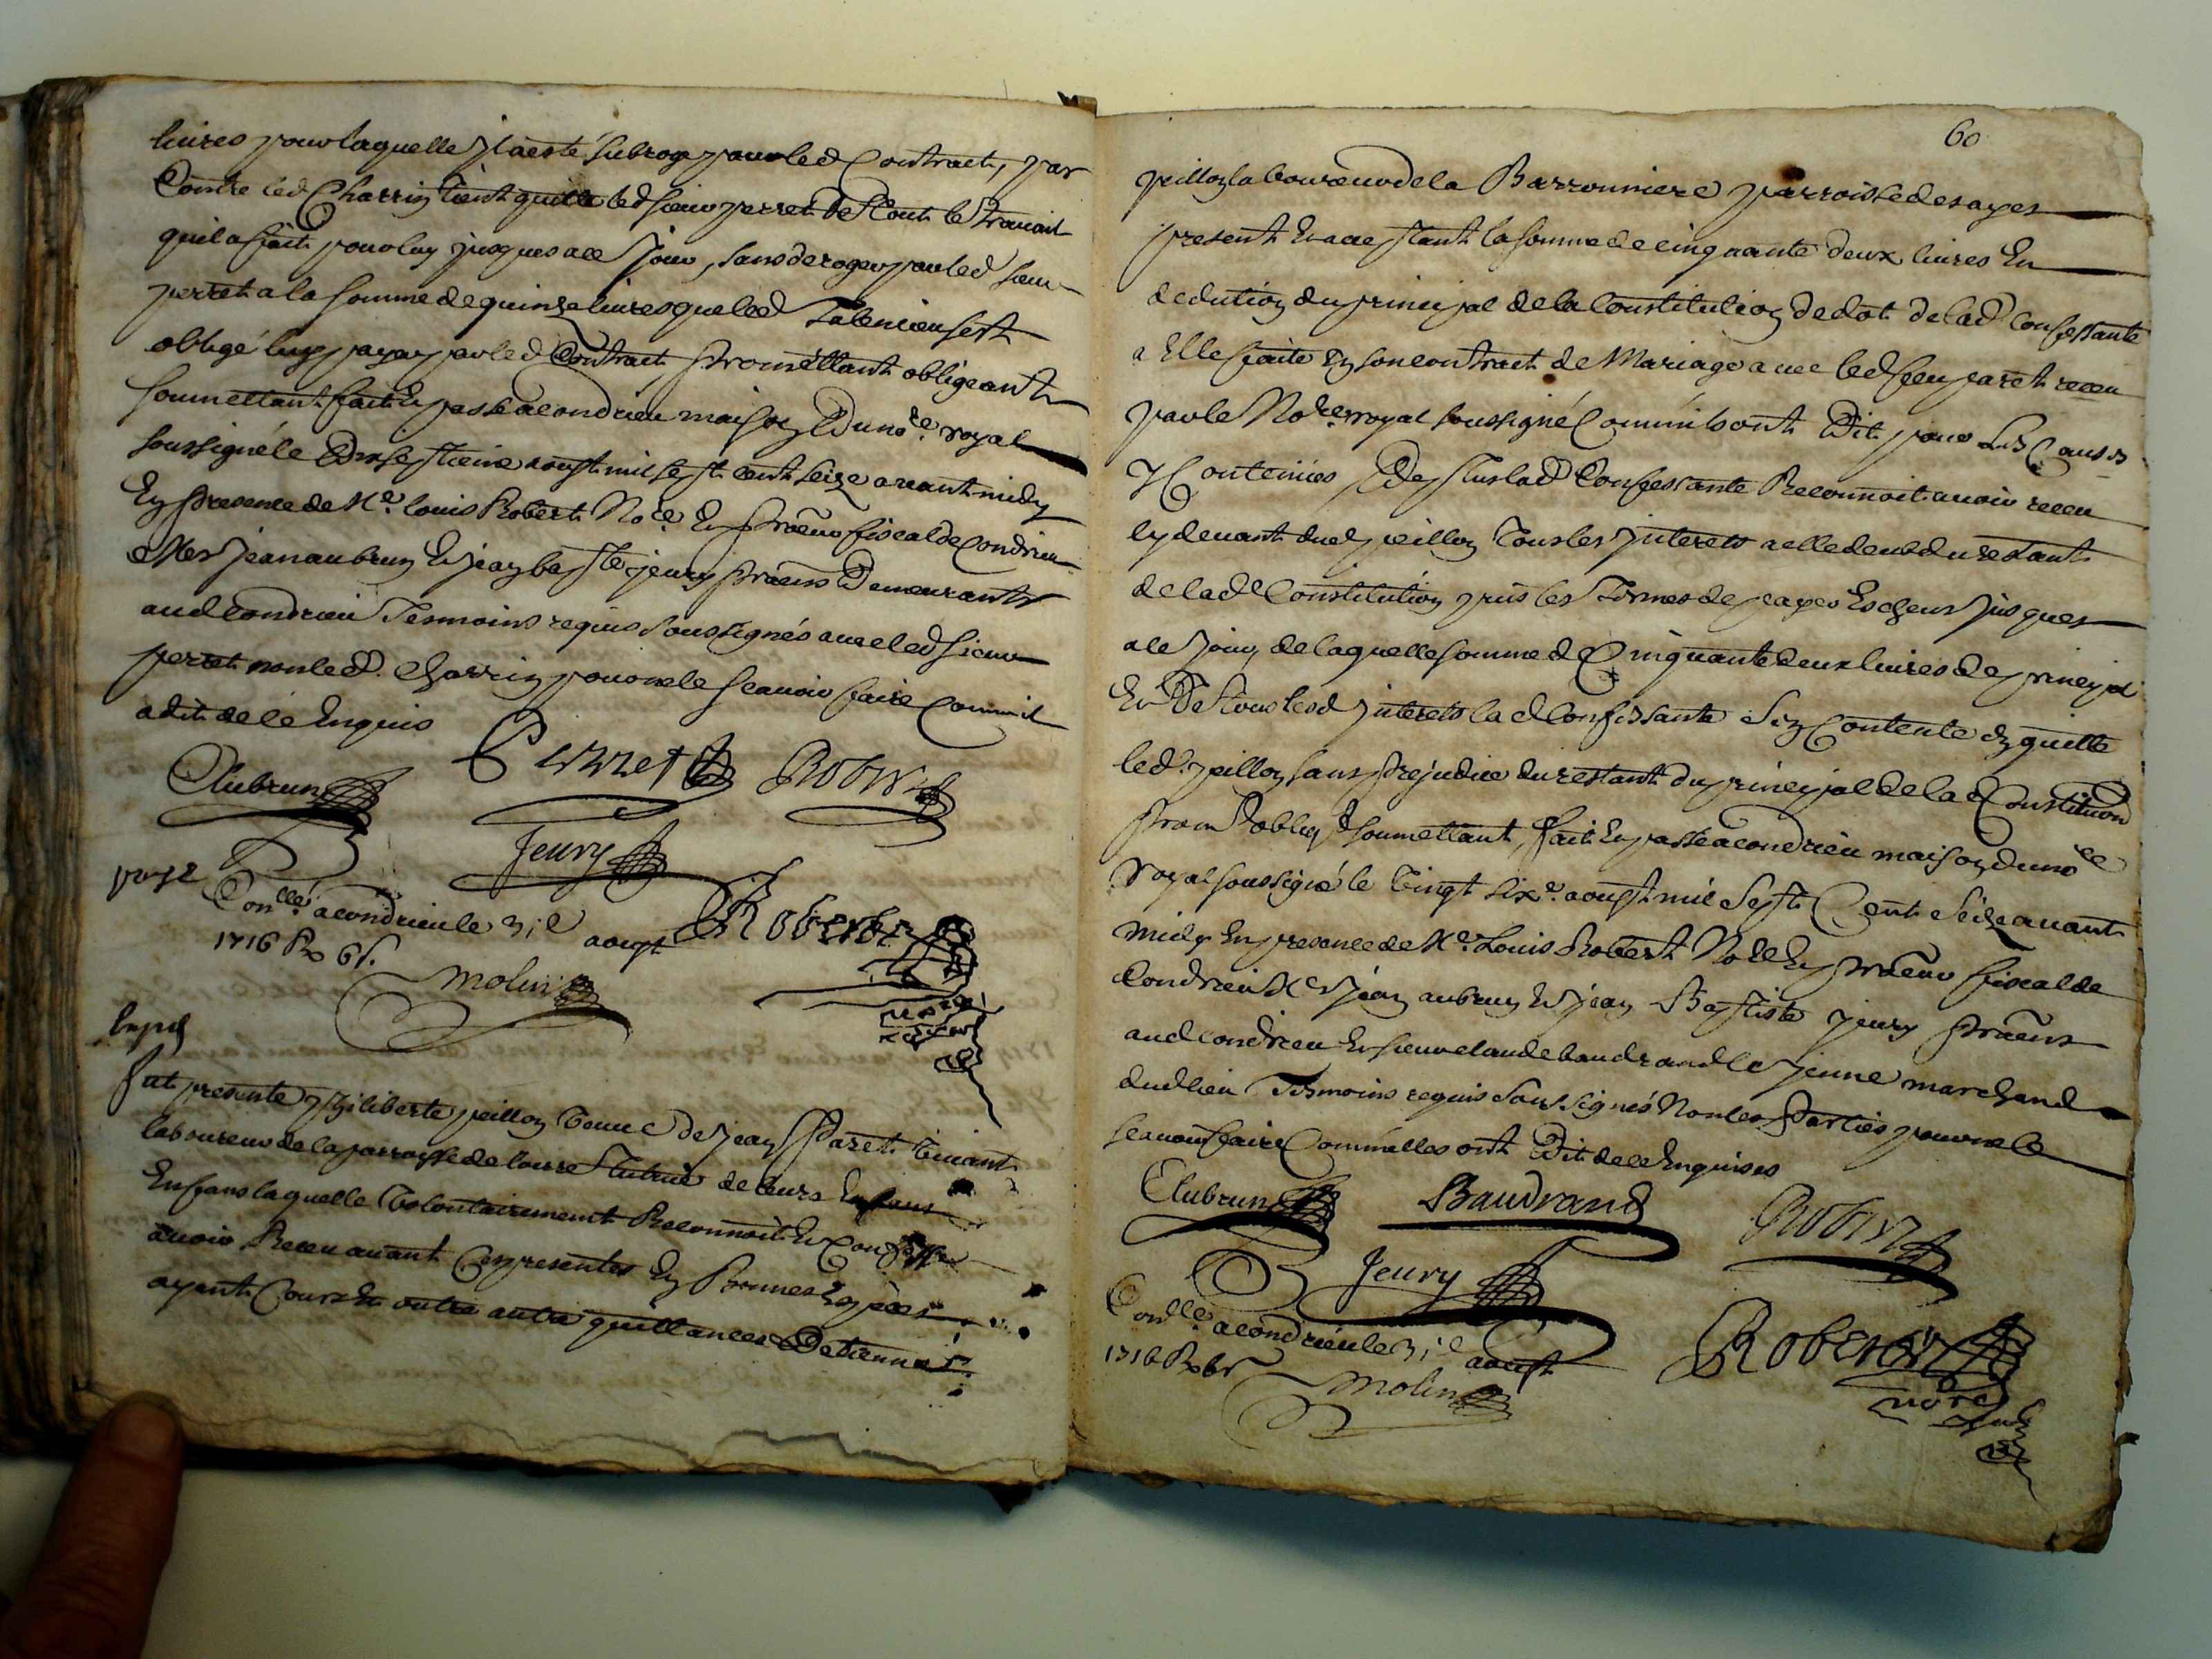 livres pour laquelle il a esté subrogé par led contract, par
Contre led Charrin tient quitte led sieur perret de tout le travail
quil a fait pour luy jusques a ce jour, sans deroger par led sieur
perret a la somme de quinze livres que led sest
obligé luy payer par led Contract promettant obligeant
soumettant fait et passé a condrieu maison du no.re royal
soussigné le aoust mil sept cent seize avant midy
En presence de Me. louis Robert No.re Et fiscal de Condrieu
Mes jean aubrun Et jean bap.te jeury Demeurants
aud Condrieu Tesmoins requis soussignés avec led sieur
perret non led. Charrin pour ne le scavoir faire comme il
a dit de ce Enquis
Aubrun Perret Robin
Jeury
Con.llé a condrieu le 31e aoust
1716 R 6 s.
Molin
Robert
no.re
Fut presente giliberte peillon veuve de jean paret vivant
laboureur de la parroisse de loire Tutrice de leurs Enfans
Enfans laquelle volontairement Reconnoit Et Confesse
avoir Receu avant Ces presentes En Bonnes Especes
ayant Cours Et outre autre quittances Detienne
60
peillon laboureur de la Barronniere parroisse des ayes
present Et acceptant la somme de cinquante deux livres En
deduction du principal de la Constitution de dot de lad Confessante
a Elle faite En son contract de Mariage avec led feu paret receu
par le No.re royal soussigné Comm'ils ont Dit pour Les Causes
y Contenues De plus lad Confessante Reconnoit avoir receu
cy devant dud peillon Tous les jnterets a elle deubs du restant
de lad.e Constitution puis les Termes de payes Escheus jusques
a ce jour, de laquelle somme de Cinquante deux livres de principal
Et De tous lesd jnterets lad Confessante sen Contente En quitte
led. peillon sans prejudice du restant du principal de lad Constitution
prom oblig soumettant, fait Et passé a condrieu maison du no.re
royal soussigné le vingt six.e aoust mil Sept Cent Seize avant
midy En presence de Me. Louis Robert No.re Et fiscal de
Condrieu Mes jean aubrun Et jean Baptiste jeury
aud condrieu Et sieur claude baudrand le jeune marchand
dud lieu Tesmoins requis soussignés Non les Parties pour ne le
scavoir faire Comm'elles ont Dit de ce Enquises
Aubrun Baudrand Robin
Jeury
Con.llé a condrieu le 31e aoust
1716 R 6 s
Molin
Robert
no.re